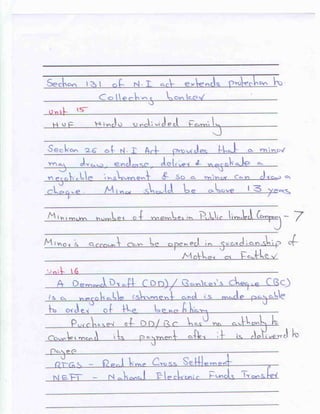 Section 131 of N.I act extends protection to
Collecting banker
Unit 15
HUF Hindu undivided Family
Section 26 of N.I Act provides that a minor
may draw, endorse, deliver & negotiate a
negotiable instrument & so a minor can draw a
cheque. Minor should be above 13 years
Minimum number of members in Public limited Company - 7
Minor's account can be opened in guardianship of
Mother or Father
Unit 16
A Demand Draft (DD)/ Banker's Cheque (BC)
is a negotiable instrument and is made payable
to order of the beneficiary
Purchaser of DD/BC has no authority to
Countermand its payment after it is delivered to
Payee
RTGS - Real time Cross Settlement
NEFT - National Electronic Funds Transfer